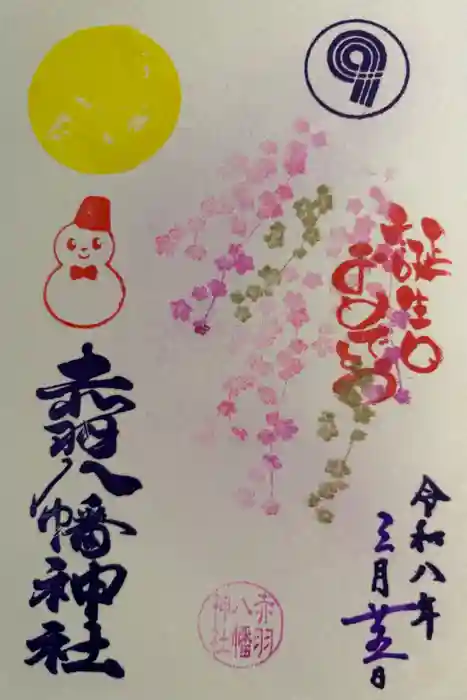 誕生日
おめでとう
赤羽八幡神社
令和八年
三月廿五日
赤羽
八幡
神社